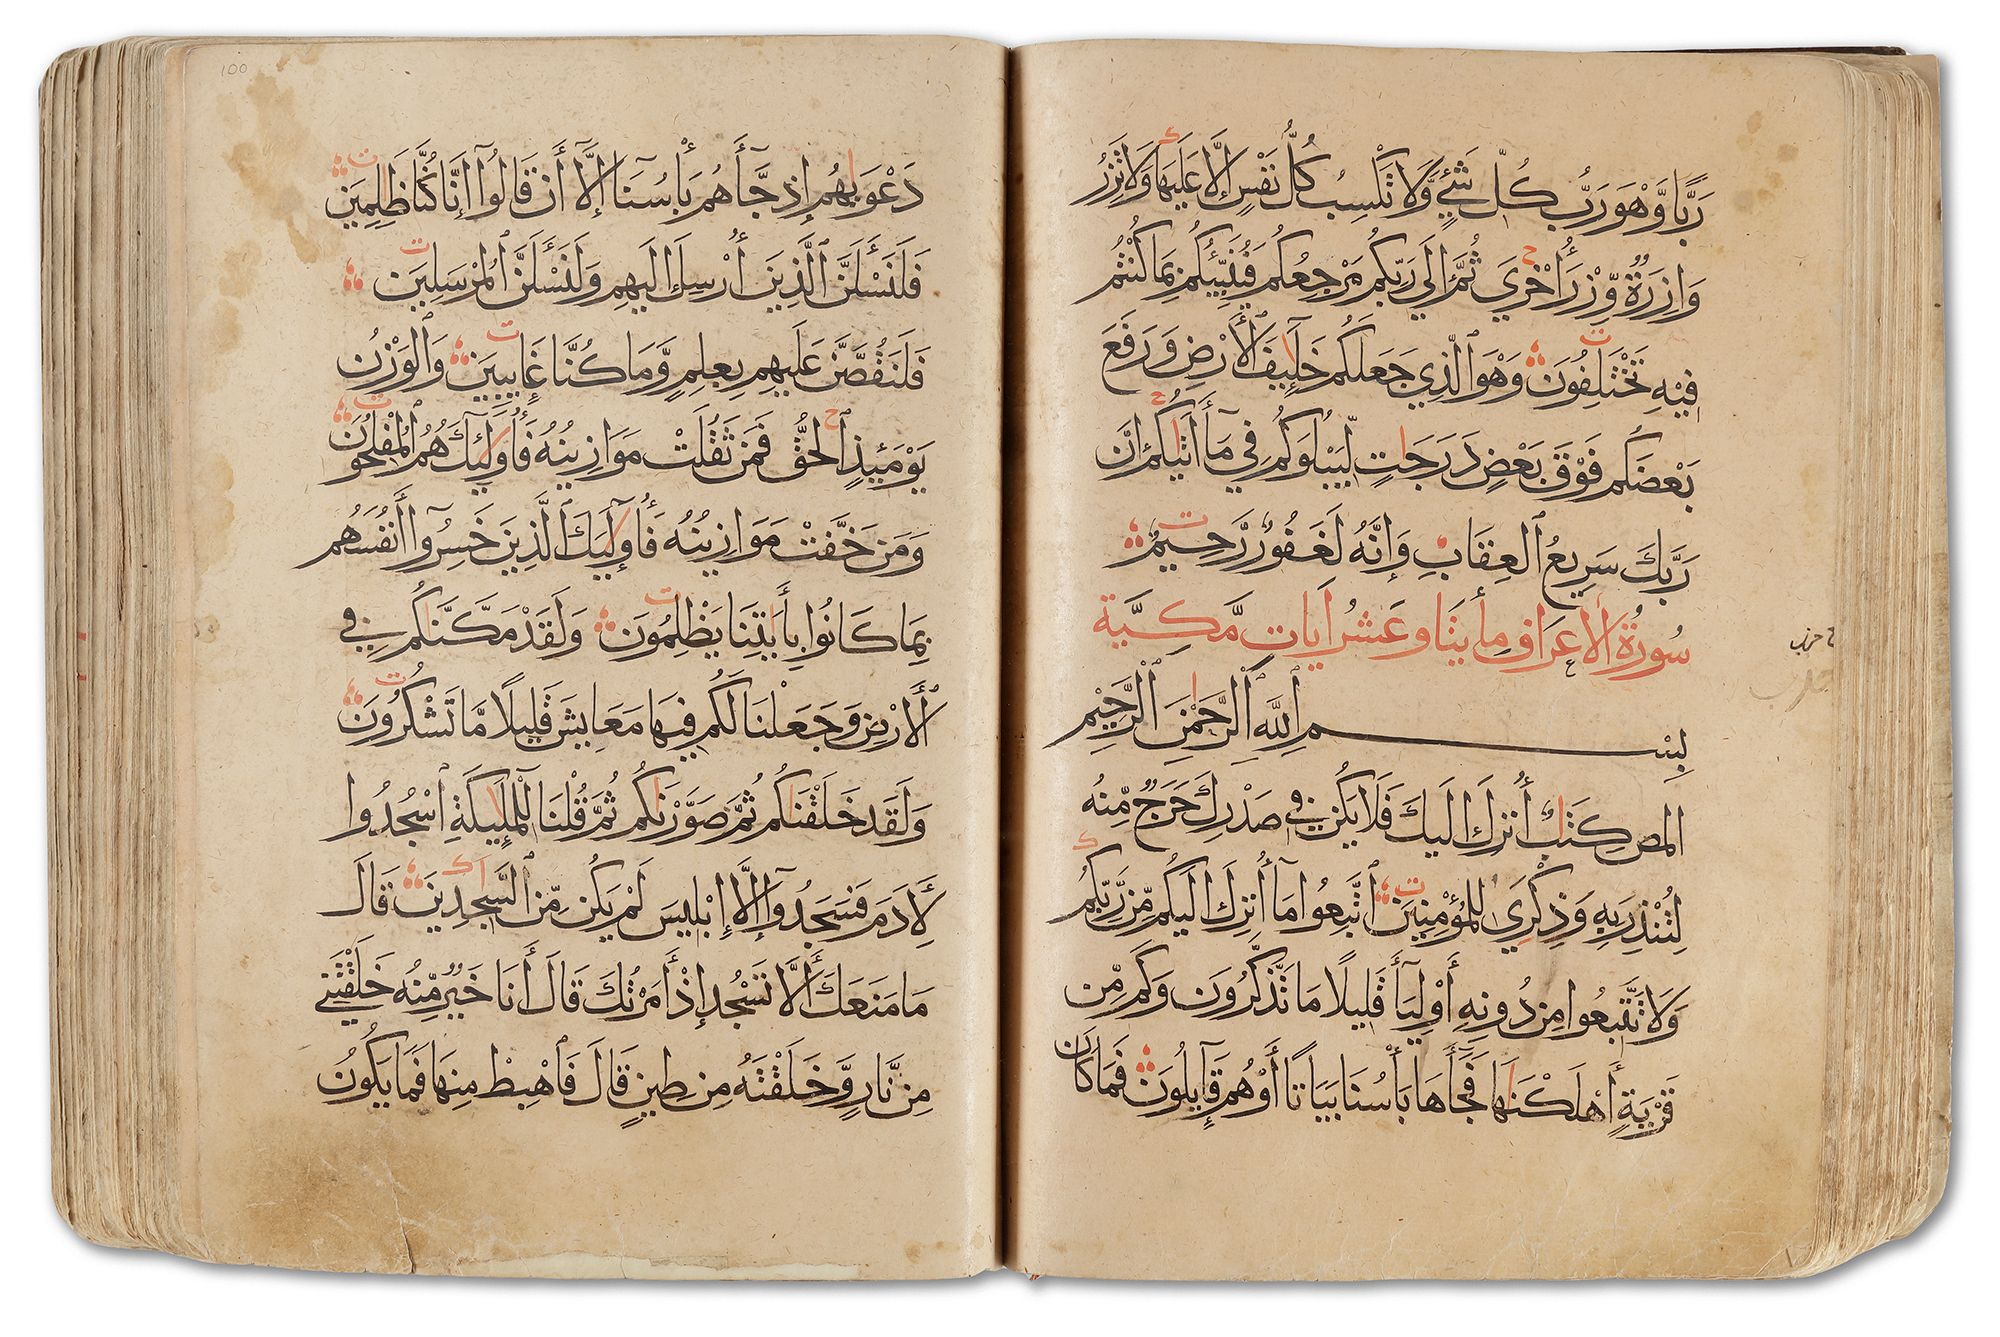 رَبًّا وَّهُوَ رَبُّ كُلِّ شَيْءٍ وَّلَا تَكْسِبُ كُلُّ نَفْسٍ إِلَّا عَلَيْهَا وَلَا تَزِرُ
وَازِرَةٌ وِّزْرَ أُخْرَى ثُمَّ إِلَى رَبِّكُم مَّرْجِعُكُمْ فَيُنَبِّئُكُم بِمَا كُنتُمْ
فِيهِ تَخْتَلِفُونَ وَهُوَ الَّذِي جَعَلَكُمْ خَلَٰٓئِفَ الْأَرْضِ وَرَفَعَ
بَعْضَكُمْ فَوْقَ بَعْضٍ دَرَجَٰتٍ لِّيَبْلُوَكُمْ فِي مَآ أَتَىٰكُمْ إِنَّ
رَبَّكَ سَرِيعُ الْعِقَابِ وَإِنَّهُ لَغَفُورٌ رَّحِيمٌ
سُورَةُ الْأَعْرَافِ مِأَيتَا وَعَشْرُ أَيَاتٍ مَّكِّيَّة
بِسْمِ اللَّهِ الرَّحْمَٰنِ الرَّحِيمِ
المص كِتَٰبٌ أُنزِلَ إِلَيْكَ فَلَا يَكُن فِي صَدْرِكَ حَرَجٌ مِّنْهُ
لِتُنْذِرَ بِهِ وَذِكْرَى لِلْمُؤْمِنِينَ اتَّبِعُوا مَا أُنزِلَ إِلَيْكُم مِّن رَّبِّكُمْ
وَلَا تَتَّبِعُوا مِن دُونِهِ أَوْلِيَآءَ قَلِيلًا مَا تَذَّكَّرُونَ وَكَم مِّن
قَرْيَةٍ أَهْلَكْنَٰهَا فَجَآءَهَا بَأْسُنَا بَيَاتًا أَوْ هُمْ قَآئِلُونَ فَمَا كَانَ
دَعْوَىٰهُمْ إِذ جَّآءَهُم بَأْسُنَآ إِلَّآ أَن قَالُوٓا إِنَّا كُنَّا ظَٰلِمِينَ
فَلَنَسْـَٔلَنَّ الَّذِينَ أُرْسِلَ إِلَيْهِمْ وَلَنَسْـَٔلَنَّ الْمُرْسَلِينَ
فَلَنَقُصَّنَّ عَلَيْهِم بِعِلْمٍ وَّمَا كُنَّا غَآئِبِينَ وَالْوَزْنُ
يَوْمَئِذٍ الْحَقُّ فَمَن ثَقُلَتْ مَوَازِينُهُ فَأُولَٰٓئِكَ هُمُ الْمُفْلِحُونَ
وَمَن خَفَّتْ مَوَازِينُهُ فَأُولَٰٓئِكَ الَّذِينَ خَسِرُوٓا أَنفُسَهُم
بِمَا كَانُوا بِـَٔايَٰتِنَا يَظْلِمُونَ وَلَقَدْ مَكَّنَّٰكُمْ فِي
الْأَرْضِ وَجَعَلْنَا لَكُمْ فِيهَا مَعَايِشَ قَلِيلًا مَّا تَشْكُرُونَ
وَلَقَدْ خَلَقْنَٰكُمْ ثُمَّ صَوَّرْنَٰكُمْ ثُمَّ قُلْنَا لِلْمَلَٰٓئِكَةِ اسْجُدُوا
لِأَدَمَ فَسَجَدُوٓا إِلَّآ إِبْلِيسَ لَمْ يَكُن مِّنَ السَّٰجِدِينَ قَالَ
مَا مَنَعَكَ أَلَّا تَسْجُدَ إِذْ أَمَرْتُكَ قَالَ أَنَا خَيْرٌ مِّنْهُ خَلَقْتَنِي
مِن نَّارٍ وَّخَلَقْتَهُ مِن طِينٍ قَالَ فَاهْبِطْ مِنْهَا فَمَا يَكُونُ
100